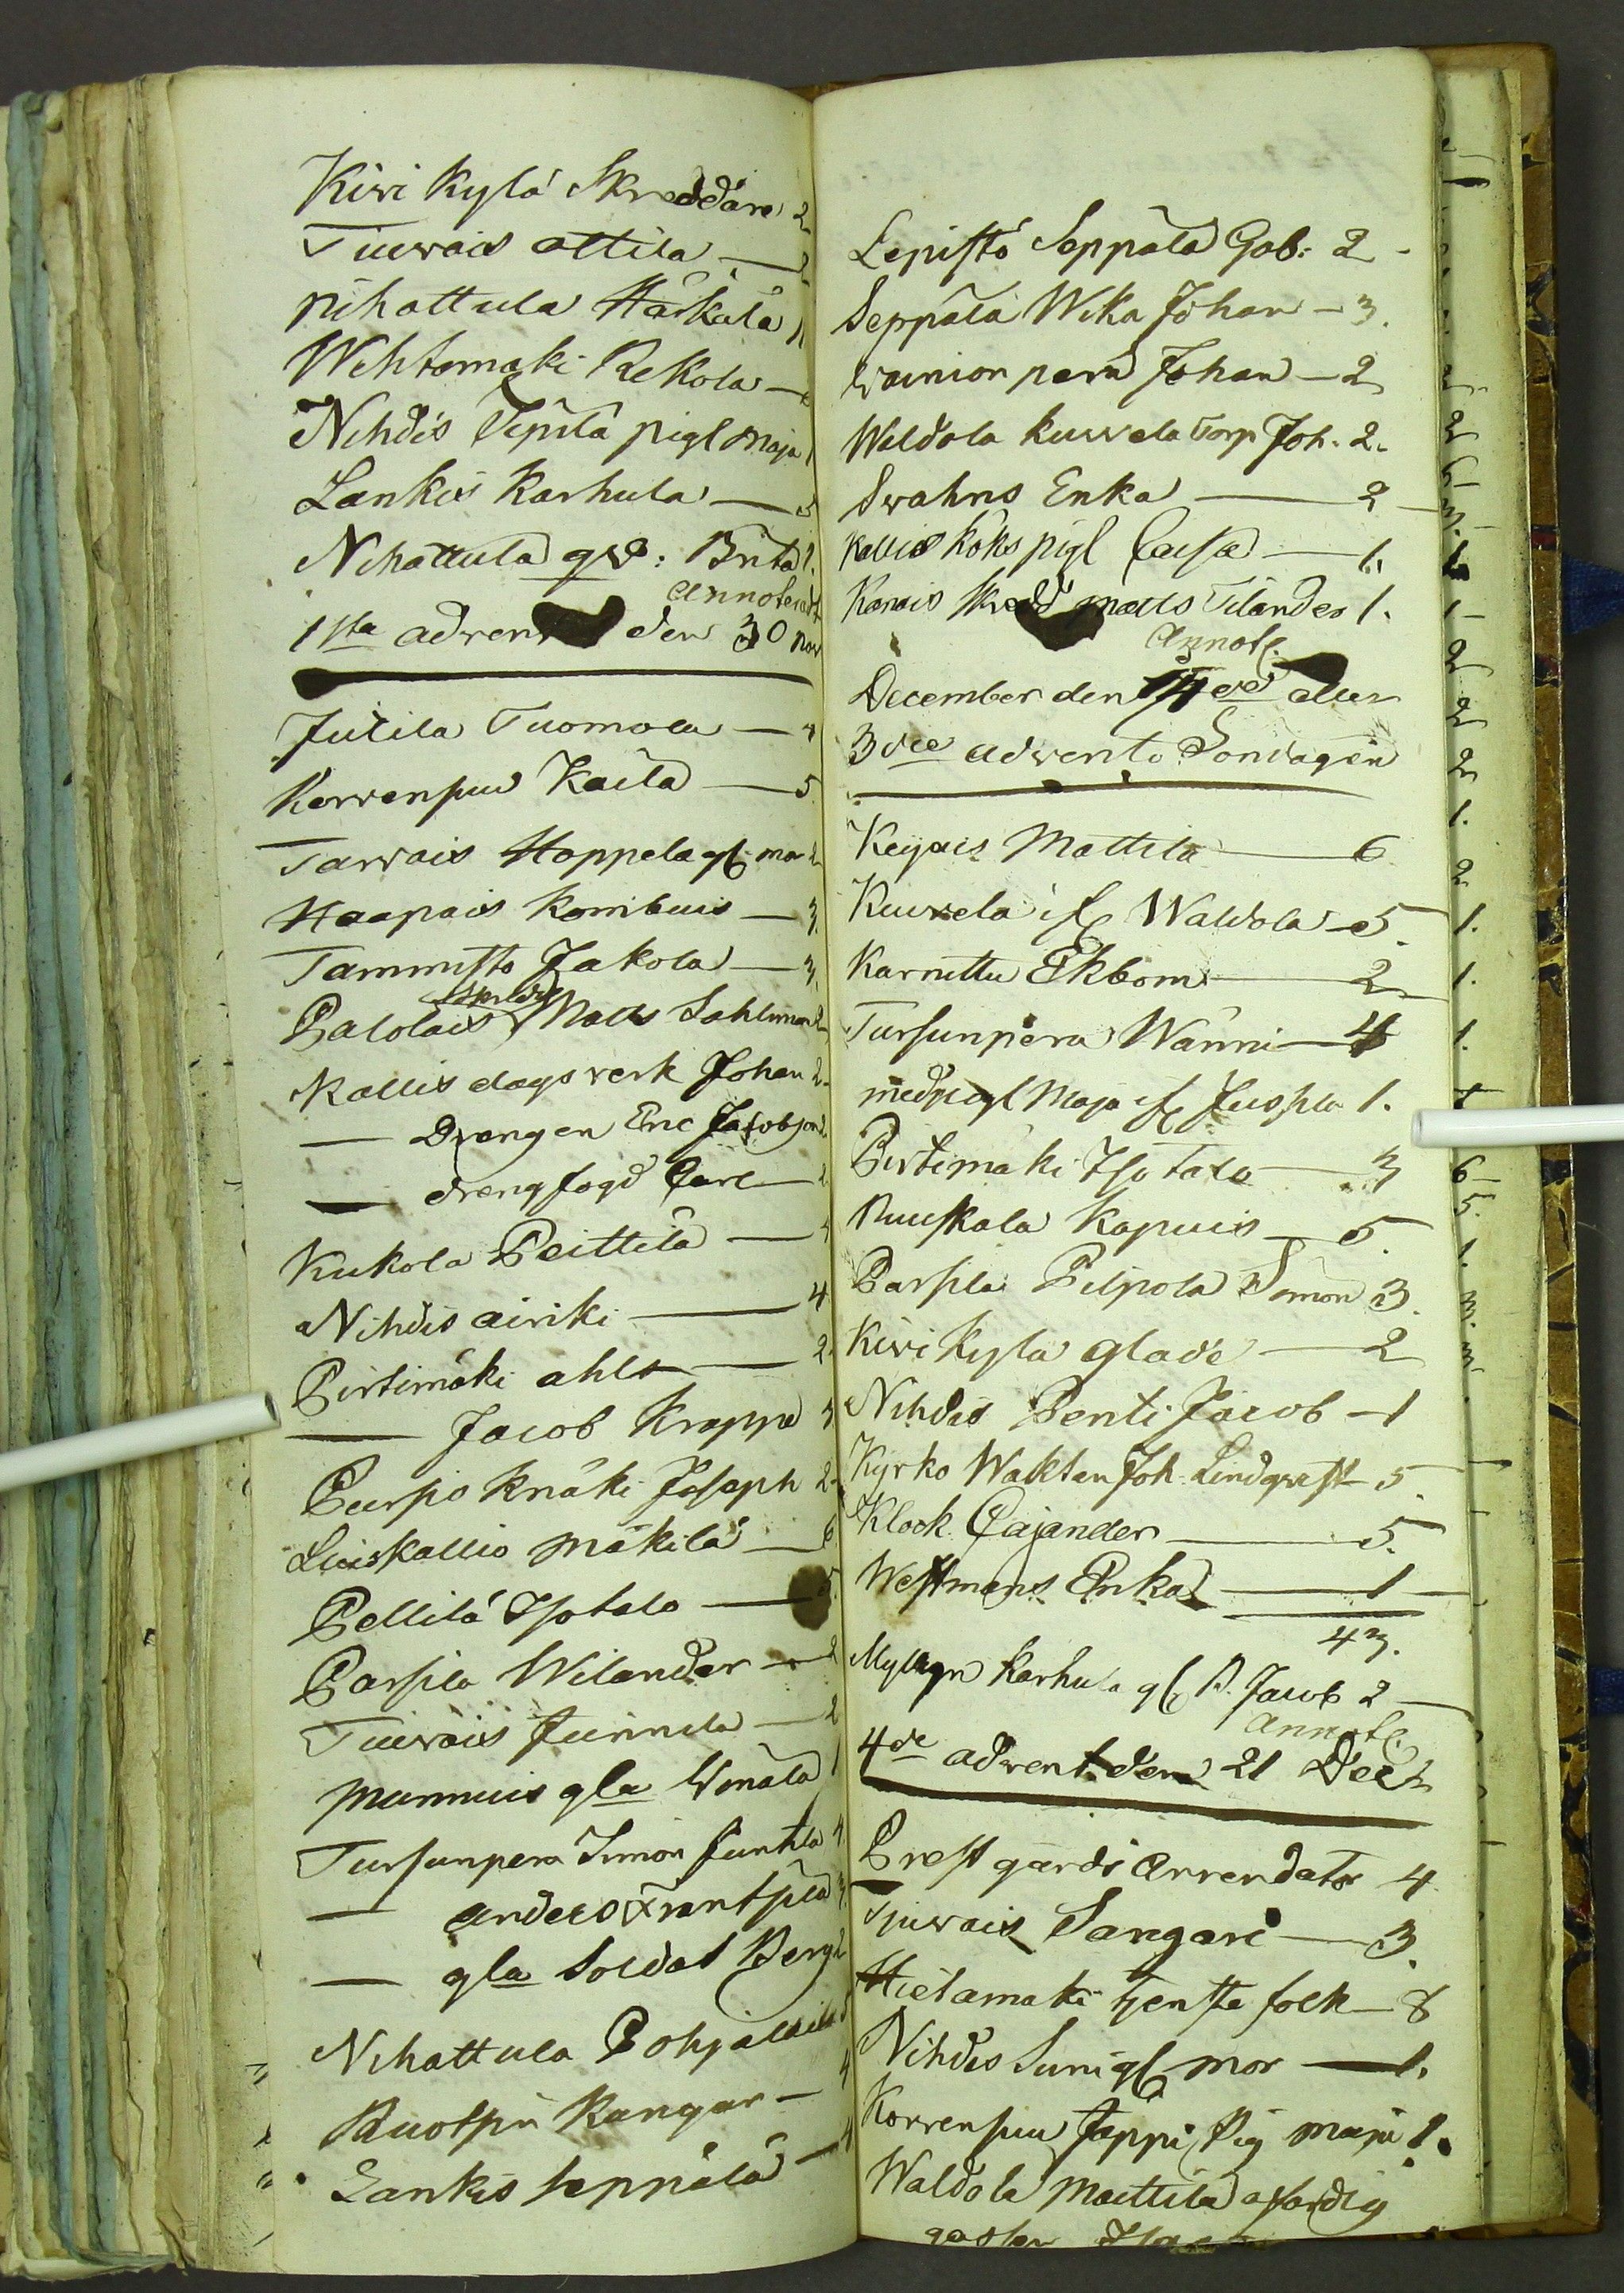 Kivi Kylä Skreddare 2
Tuervais Ottila —
Nihattula Härkälä 1
Wehtemäki Rekola —
Nihdis Tipila pigl Maja 1
Lankis Karhula — 5
Nihattula gl: Brita 1.
annoterat
1sta advent den 30 Nov
Jutila Tuomola — 4
Korvenpuu Kaila — 5
Tarvais Hoppela gl. mor 2
Haapais Kombuis — 3.
Tammisto Jakola — 3.
Palolais Matts Sahlman 2
Kallis dagsverk Johan 2
— Drengen Eric Jacobson
— drengfogd Carl — 2
Kukola Peittilä —
Nihdis airiki — 4
Pirtimäki ahls — 2.
— Jacob Krappe 3
Purpo Knäki Joseph 2
Luiskallio Mäkilä — 6
Pellilä Isotalo — 5.
Parsila Wilander — 2
Tuevais Junnila — 2
Mannuis gla Wänälä 1
Tursunpera Simon Junttila 4
— anders Frantsila 3.
— gla Soldat Berg 2
Nihattula Pohjalaila
Ruotsin Kangar — 4
Lankis Seppälä —
Lepistö Seppälä Gab: 2 -
Seppälä Wika Johan — 3.
Wainionperä Johan — 2
Waldola Kuvela Torp Joh. 2.
Swahns Enka — 2
Kallis Köks pigl Caisa — 1.
Kanais Skredd Matts Tilander 1.
Annote.
December den 14de eller
3die advents Söndagen
Keijais Mattila — 6
Kuvela if Waldola — 5.
Karnittu Ekbom — 2
Tursunpera Wänni — 4
med pigl Maja if Juspla 1.
Pirtimäki Isotalo — 3
Ruuskala Kapuis — 5.
Parsila Pilpola Simon 3.
Kivi Kyla Glade — 2
Nihdis Penti Jacob — 1
Kyrko Wakten Joh. Lindqvist 5.
Klock. Cajander — 5.
Westmans Enka — 1
43.
Karhula gl D. Jacob 2 —
Annote.
4de advent den 21 Dec
Prestgårds Arrendator 4
Tjuvais Sangari — 3.
Hietamaki tjenste folk — 8
Nihdis Suni gl mor — 1.
Korvenpuu Jäppi Pig Maja 1.
Waldola Mattila afsardig